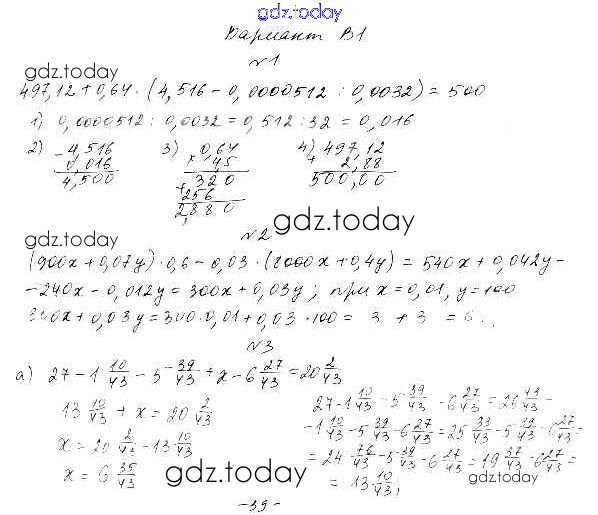 gdz.today
Вариант В1
№1
gdz.today
497,12 + 0,64 · (4,516 - 0,0000512 : 0,0032) = 500
1) 0,0000512 : 0,0032 = 0,512 : 32 = 0,016
2) - 4,516 3) × 0,64 4) + 497,12
0,016 4,5 2,88
4,500 320 500,00
+ 256
2,880
gdz.today
№2
gdz.today
(900x + 0,07y) · 0,6 - 0,03 · (8000x + 0,4y) = 540x + 0,042y -
- 240x - 0,012y = 300x + 0,03y ; при x = 0,01, y = 100
300x + 0,03y = 300 · 0,01 + 0,03 · 100 = 3 + 3 = 6.
№3
а) 27 - 1 10/43 - 5 39/43 + x - 6 27/43 = 20 2/43
13 10/43 + x = 20 2/43
x = 20 2/43 - 13 10/43
x = 6 35/43
27 - 1 10/43 - 5 39/43 - 6 27/43 = 26 43/43 -
- 1 10/43 - 5 39/43 - 6 27/43 = 25 33/43 - 5 39/43 - 6 27/43 =
= 24 76/43 - 5 39/43 - 6 27/43 = 19 37/43 - 6 27/43 =
= 13 10/43;
gdz.today
gdz.today
- 39 -